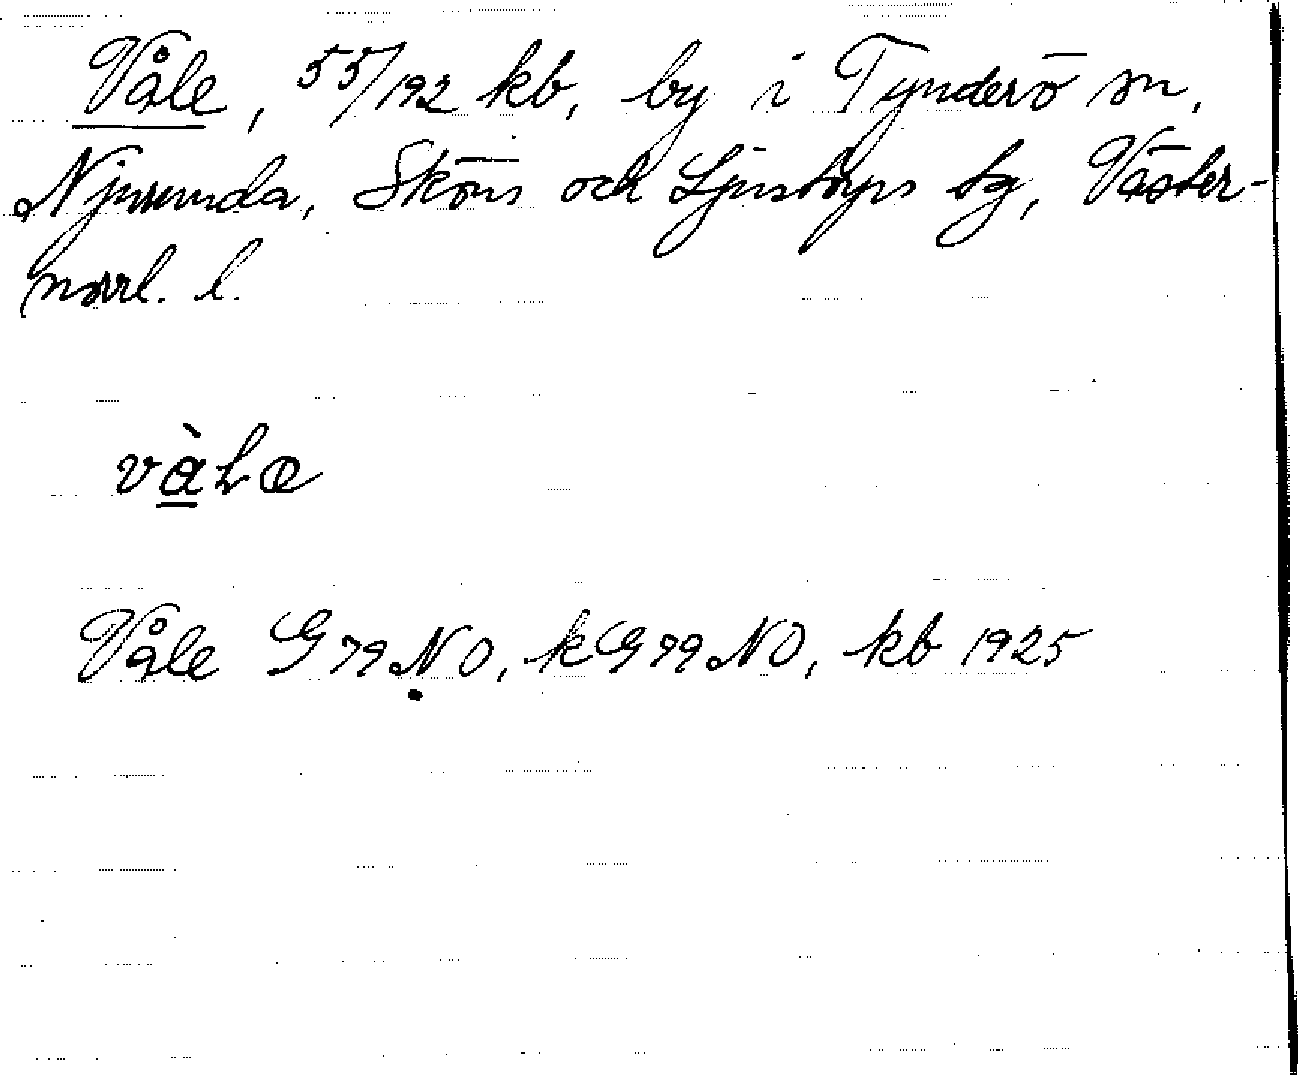 Våle, 55/192 kb, by i Tynderö sn,
Njurunda, Sköns och Ljustorps tg, Väster-
norrl. l.
vàLe
Våle G 79 NO, k G 79 NO, kb 1925